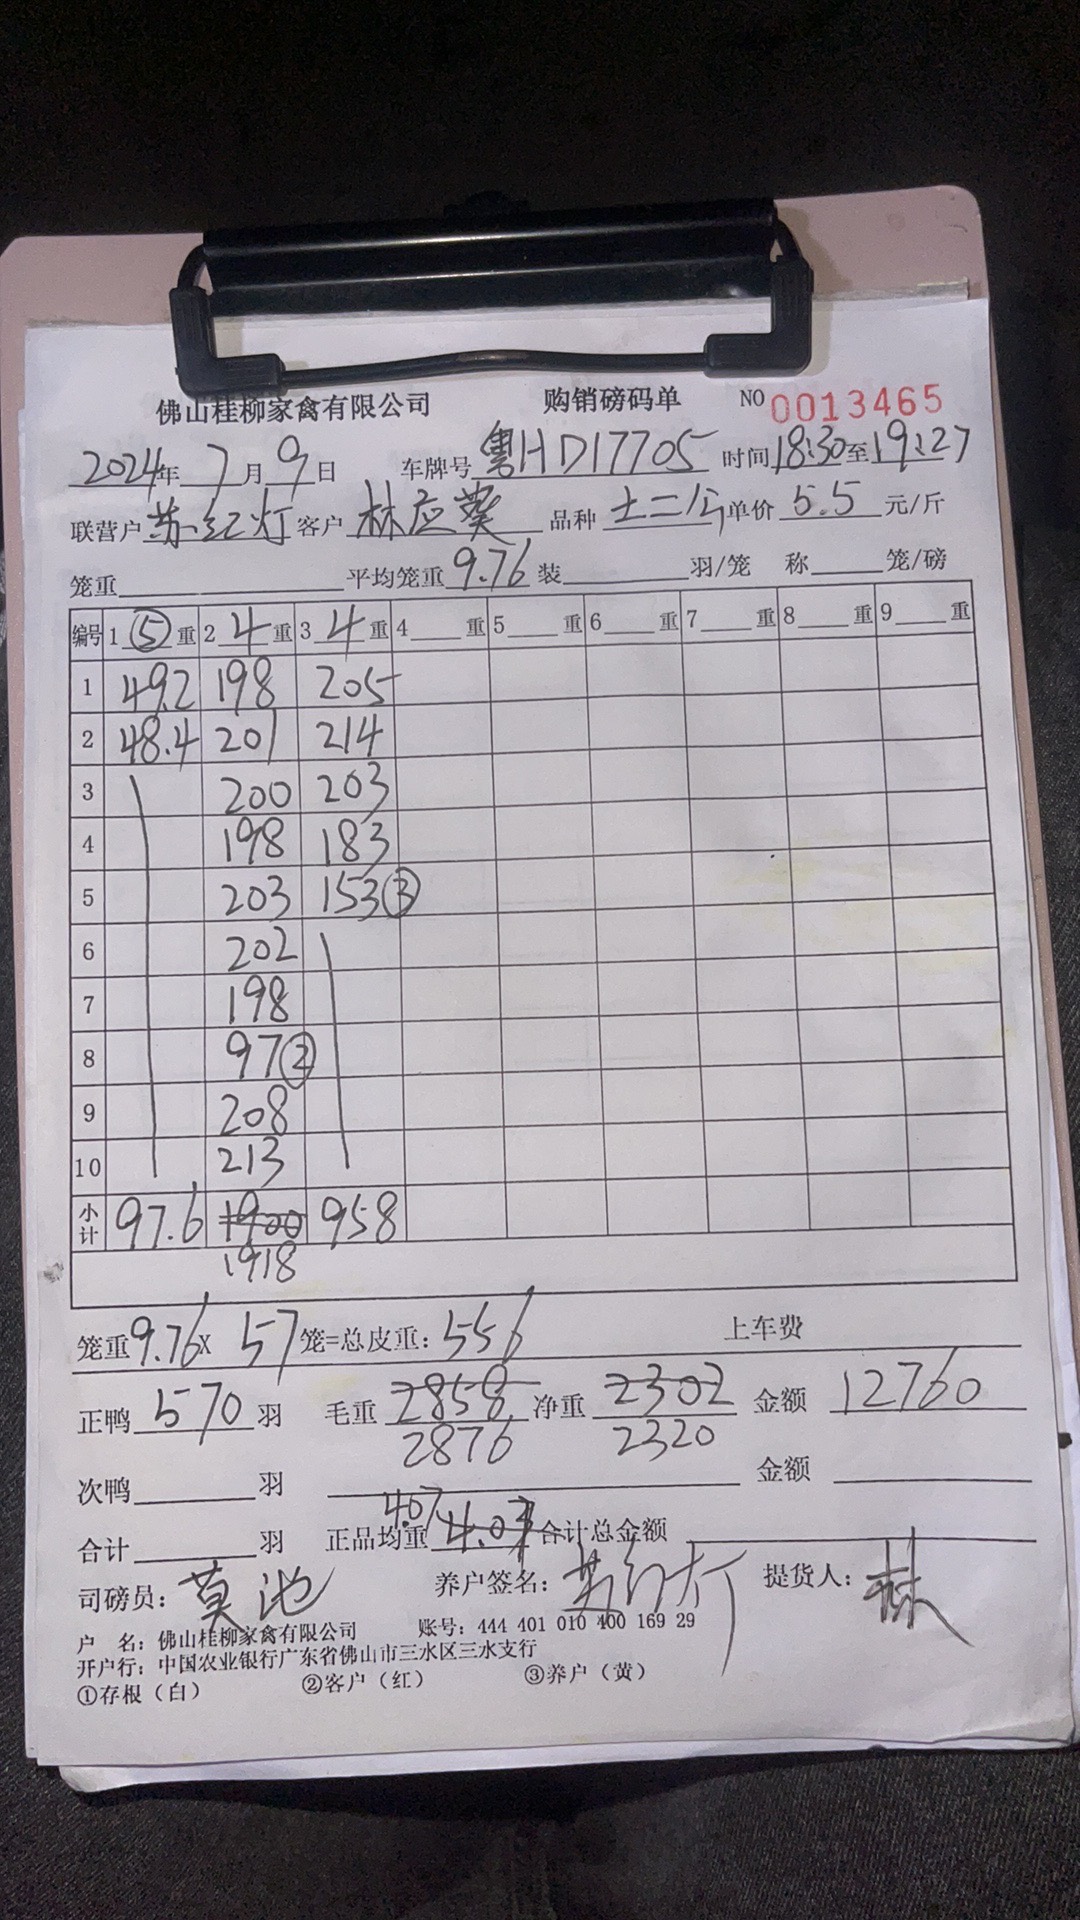 佛山桂柳家禽有限公司 购销磅码单 NO 0013465
2024年 7月 9日 车牌号 粤HD17705 时间 18:30至19:27
联营户 苏红灯 客户 林应葵 品种 土二公 单价 5.5 元/斤
笼重 平均笼重 9.76 装 羽/笼 称 笼/磅
编号 1 ⑤ 重 2 4 重 3 4 重 4 重 5 重 6 重 7 重 8 重 9 重
1 49.2 198 205
2 48.4 201 214
3 200 203
4 198 183
5 203 153③
6 202
7 198
8 97②
9 208
10 213
小计 97.6 1900 958
1918
笼重 9.76 X 57 笼=总皮重: 556 上车费
正鸭 570 羽 毛重 2858 净重 2302 金额 12760
2876 2320
次鸭 羽 金额
合计 羽 正品均重 4.07 4.03 合计总金额
司磅员: 莫池 养户签名: 苏红灯 提货人: 林
户 名: 佛山桂柳家禽有限公司 账号: 444 401 010 400 169 29
开户行: 中国农业银行广东省佛山市三水区三水支行
①存根（白） ②客户（红） ③养户（黄）